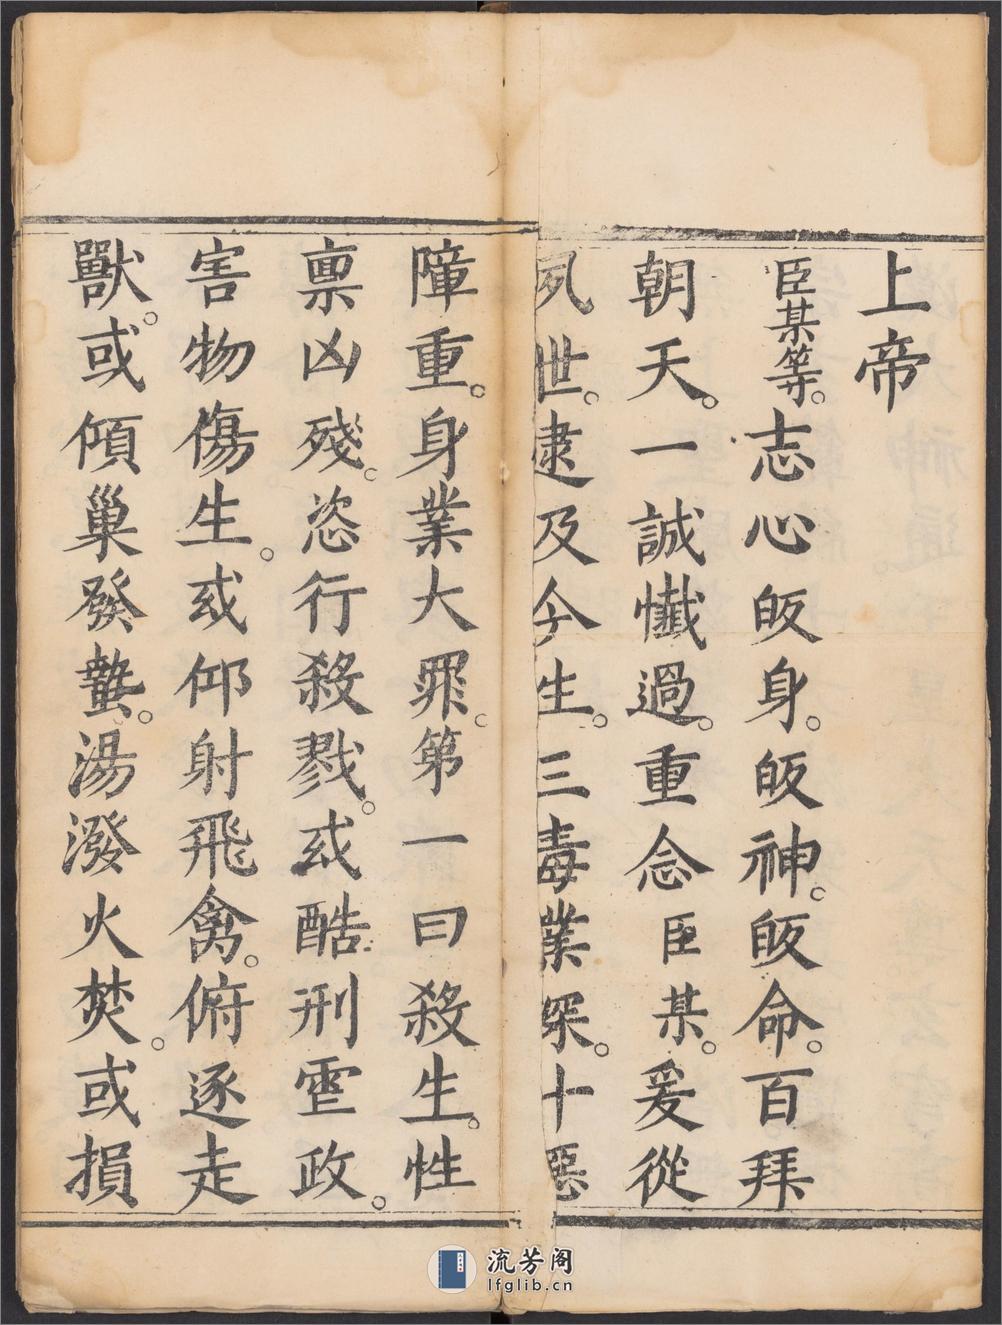 上帝
臣某等。志心皈身。皈神。皈命。百拜
朝天。一誠懺過。重念臣某。爰從
夙世。逮及今生。三毒業深。十惡
障重。身業大罪。第一曰殺生。性
禀凶殘。恣行殺戮。或酷刑虐政。
害物傷生。或仰射飛禽。俯逐走
獸。或傾巢發蟄。湯潑火焚。或損
流芳阁
lfglib.cn